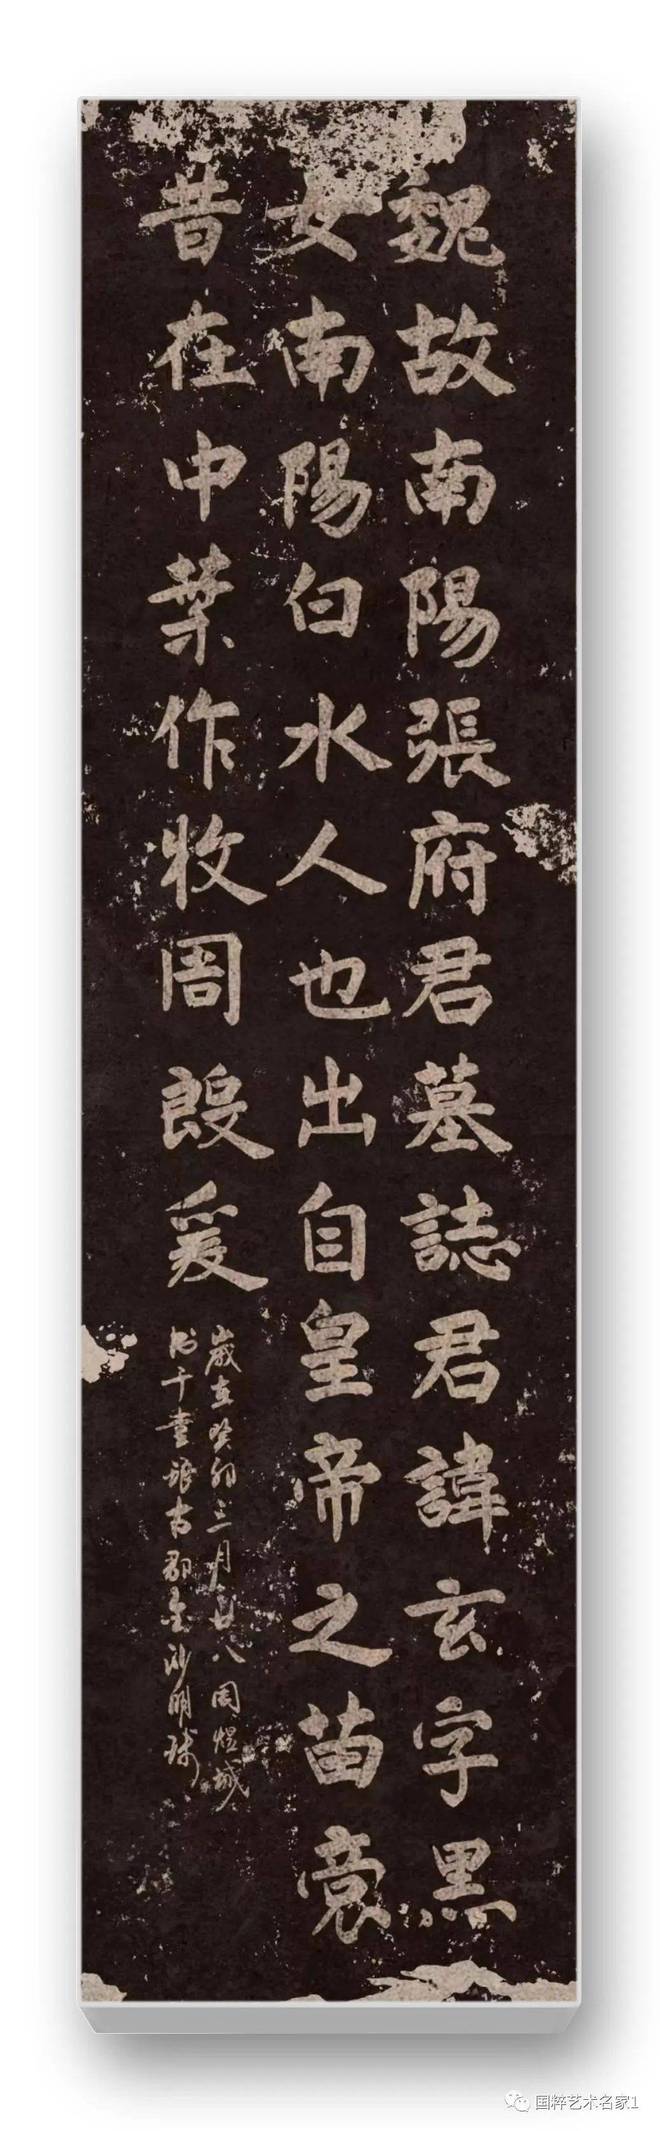 魏故南陽張府君墓誌君諱玄字黑
女南陽白水人也出自皇帝之苗裔
昔在中葉作牧周殷爰
歲在癸卯三月廿八周煜城
古郡金沙明珠
国粹艺术名家1